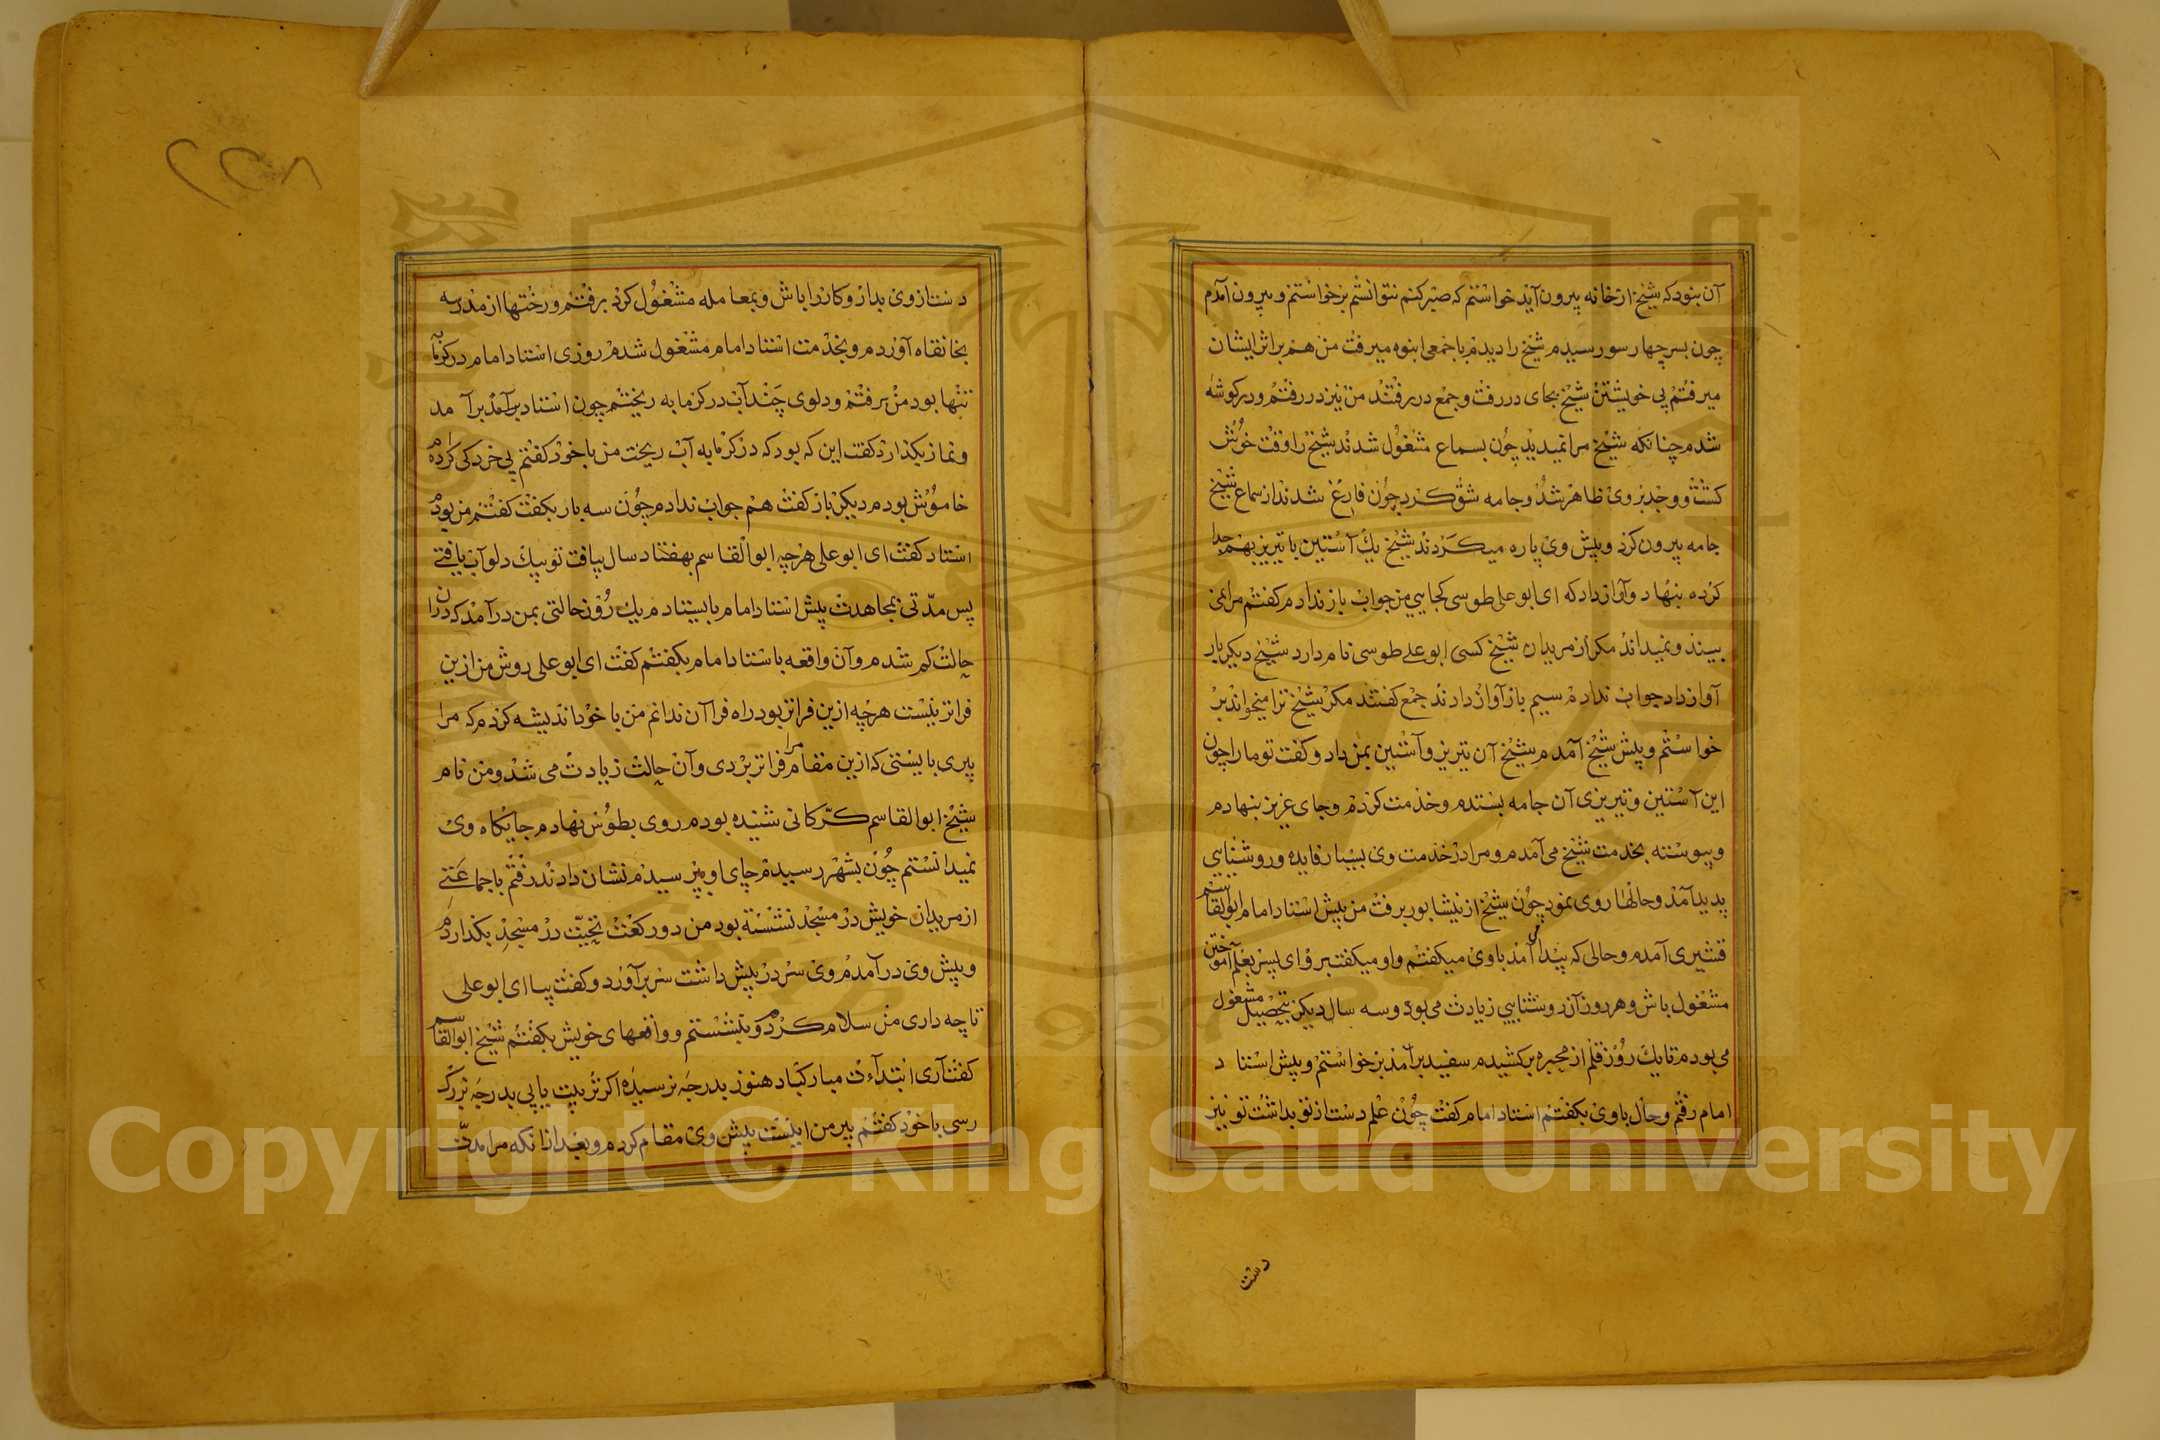 آن نبود که شیخ از خانه بیرون آید خواستم که صبر کنم نتوانستم برخواستم و بیرون آمدم
چون بسر چهار سو رسیدم شیخ را دیدم با جمعی انبوه میرفت من هم بر اثر ایشان
میرفتم بی خویشتن شیخ بجای در رفت و جمع در رفتند من نیز در رفتم و در کوشه
شدم چنانکه شیخ مرا نمیدید چون بسماع مشغول شدند شیخ را وقت خوش
کشت و وجد بر وی ظاهر شد و جامه شق کرد چون فارغ شدند از سماع شیخ
جامه بیرون کرد و پیش وی پاره میکردند شیخ یك آستین با تیریز بهم جدا
کرده بنهاد و آواز داد که ای ابو علی طوسی کجایی من جواب باز ندادم کفتم مرا نمی
بیند و نمیداند مکر از مریدان شیخ کسی ابو علی طوسی نام دارد شیخ دیکر بار
آواز داد جواب ندادم سیم باز آواز داد جمع کفتند مکر شیخ ترا میخواند بر
خواستم و پیش شیخ آمدم شیخ آن تیریز و آستین بمن داد و کفت تو ما را چون
این آستین و تیریزی آن جامه بستدم و خدمت کردم و جای عزیز بنهادم
و پیوسته بخدمت شیخ می آمدم و مرا در خدمت وی بسیار فایده و روشنایی
پدید آمد و حالها روی نمود چون شیخ از نیشابور برفت من پیش استاد امام ابو القاسم
قشیری آمدم و حالی که پیدا می آمد با وی میکفتم و او میکفت برو ای پسر بعلم آموختن
مشغول باش و هر روز آن روشنایی زیادت می بود و سه سال دیکر بتحصیل مشغول
می بودم تا یك روز قلم از محبره بر کشیدم سفید بر آمد برخواستم و پیش استاد
امام رفتم و حال با وی بکفتم استاد امام کفت چون علم دست از تو بداشت تو نیز
دست
دست از وی بدار و کار را باش و بمعامله مشغول کرد برفتم و رختها از مدرسه
بخانقاه آوردم و بخدمت استاد امام مشغول شدم روزی استاد امام در کرمابه
تنها بود من برفتم و دلوی چند آب در کرمابه ریختم چون استاد برآمد
و نماز بکذارد کفت این که بود که در کرمابه آب ریخت من با خود کفتم بی خردکی کرده ام
خاموش بودم دیکر باز کفت هم جواب ندادم چون سه بار بکفت کفتم من بودم
استاد کفت ای ابو علی هرچه ابو القاسم بهفتاد سال بیافت تو بیك دلو آب یافتی
پس مدتی بمجاهدت پیش استاد امام بایستادم یك روز حالتی بمن در آمد که در آن
حالت کم شدم و آن واقعه با استاد امام بکفتم کفت ای ابو علی روش من ازین
فراتر نیست هرچه ازین فراتر بود راه فرا آن ندانم من با خود اندیشه کردم که مرا
پیری بایستی که ازین مقام مرا فراتر بردی و آن حالت زیادت می شد و من نام
شیخ ابو القاسم کرّکانی شنیده بودم روی بطوس نهادم جایکاه وی
نمیدانستم چون بشهر رسیدم جای او بپرسیدم نشان دادند رفتم با جماعتی
از مریدان خویش در مسجد نشسته بود من دو رکعت تحیت در مسجد بکذاردم
و پیش وی در آمدم وی سر در پیش داشت سر برآورد و کفت بیا ای ابو علی
تا چه داری من سلام کردم و بنشستم و واقعهای خویش بکفتم شیخ ابو القاسم
کفت آری ابتدآءت مبارکباد هنوز بدرجه نرسیده اکر تربیت یابی بدرجه بزرک
رسی با خود کفتم پیر من اینست پیش وی مقام کردم و بعد از آنکه مرا مدتی
Copyright © King Saud University
1957